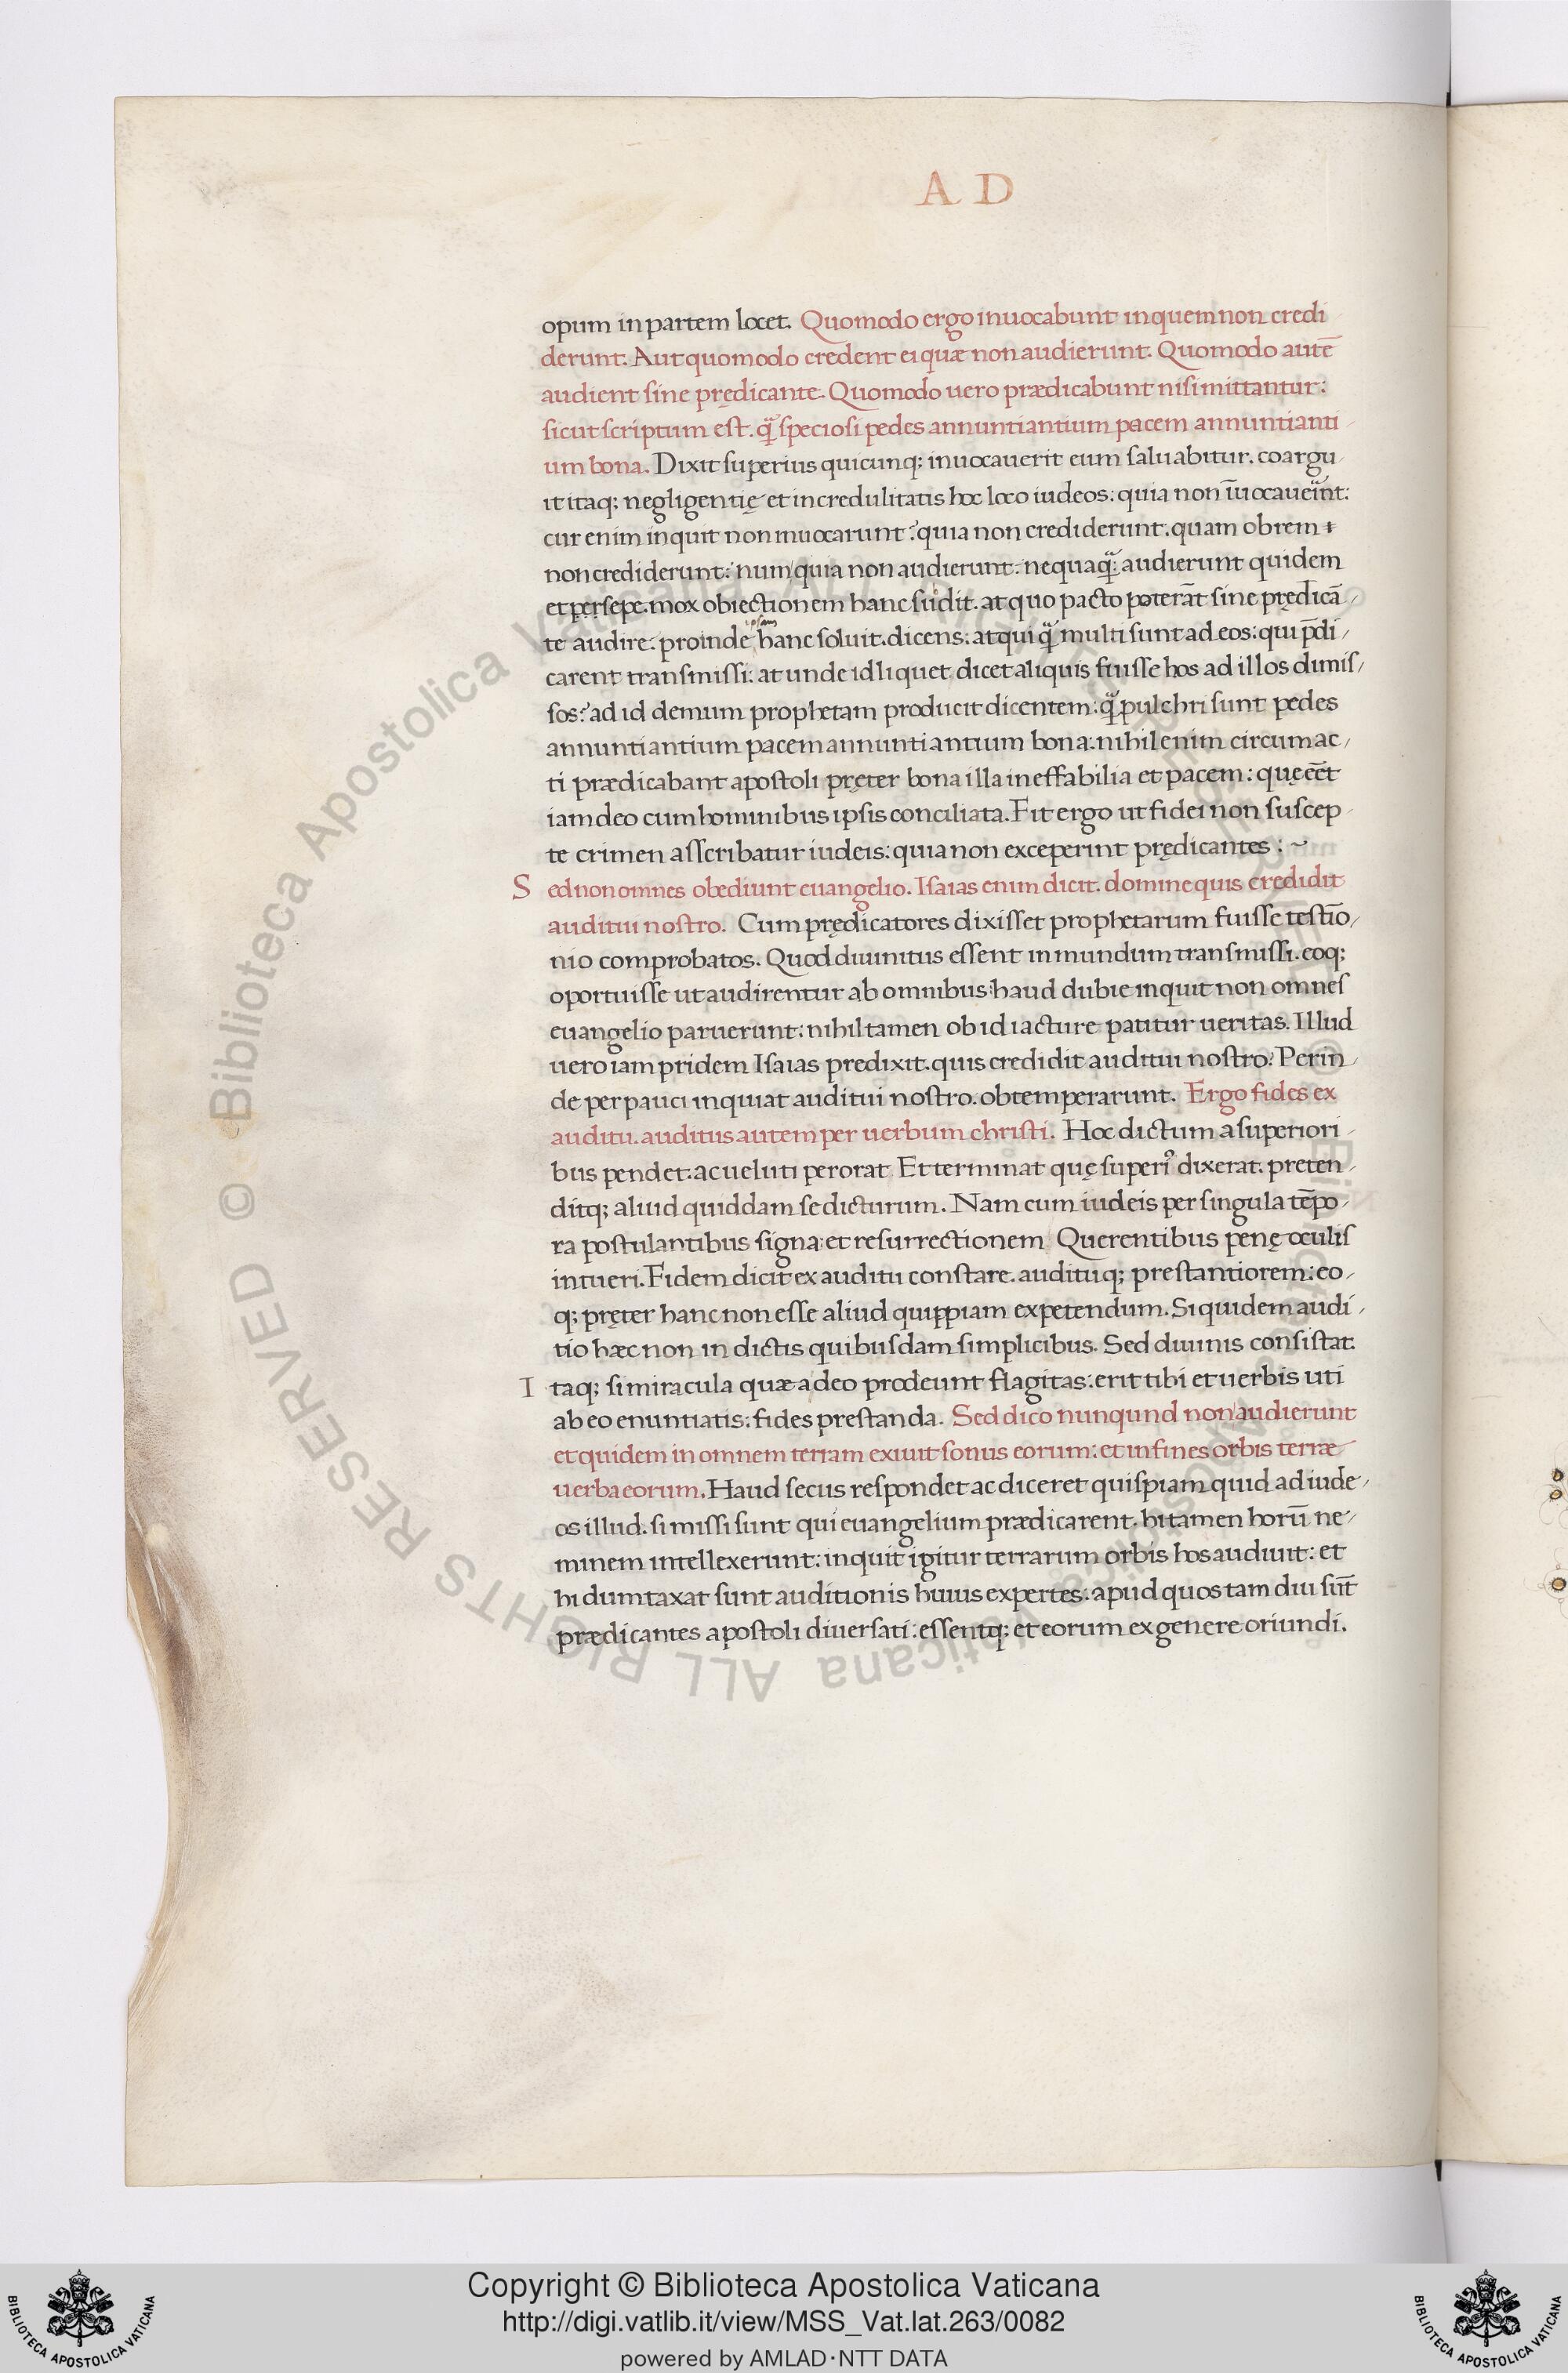 A D
opum in partem locet. Quomodo ergo inuocabunt inquem non credi
derunt. Aut quomodo credent ei quæ non audierunt. Quomodo autē
audient sine prędicante. Quomodo uero prædicabunt nisi mittantur:
sicut scriptum est. q̃ speciosi pedes annuntiantium pacem annuntianti
um bona. Dixit superius quicunq; inuocauerit eum saluabitur. coargu
it itaq; negligentię et incredulitatis hoc loco iudeos: quia non ĩuocauerĩnt:
cur enim inquit non inuocarunt? quia non crediderunt. quam obrem
non crediderunt: num quia non audierunt. nequaq̃: audierunt quidem
et persepe. mox obiectionem hanc sudit. at quo pacto poterāt sine prędicā
te audire. proinde ipsam hanc soluit. dicens: atqui q̃ multi sunt ad eos: qui p̄di
carent transmissi: at unde id liquet dicet aliquis fuisse hos ad illos dimis
sos? ad id demum prophetam producit dicentem: q̃ pulchri sunt pedes
annuntiantium pacem annuntiantium bona: nihil enim circumac
ti prædicabant apostoli pręter bona illa ineffabilia et pacem: quę eēt
iam deo cum hominibus ipsis conciliata. Fit ergo ut fidei non suscep
te crimen asscribatur iudeis: quia non exceperint prędicantes: ~
S ed non omnes obediunt euangelio. Isaias enim dicit. domine quis credidit
auditui nostro. Cum prędicatores dixisset prophetarum fuisse testīo
nio comprobatos. Quod diuinitus essent in mundum transmissi. eoq;
oportuisse ut audirentur ab omnibus: haud dubie inquit non omnes
euangelio paruerunt: nihil tamen ob id iacture patitur ueritas. Illud
uero iam pridem Isaias predixit. quis credidit auditui nostro? Perin
de per pauci inquiat auditui nostro. obtemperarunt. Ergo fides ex
auditu. auditus autem per uerbum christi. Hoc dictum a superiori
bus pendet. ac ueluti perorat Et terminat quę superi⁹ dixerat. preten
ditq; aliud quiddam se dicturum. Nam cum iudeis per singula tēpo
ra postulantibus signa: et resurrectionem Querentibus penę oculis
intueri. Fidem dicit ex auditu constare. audituq; prestantiorem: eo
q; pręter hanc non esse aliud quippiam expetendum. Siquidem audi
tio hæc non in dictis quibusdam simplicibus. Sed diuinis consistat.
I taq; si miracula quæ a deo prodeunt flagitas: erit tibi et uerbis uti
ab eo enuntiatis: fides prestanda. Sed dico nunqund non audierunt
et quidem in omnem terram exiuit sonus eorum: et in fines orbis terræ
uerba eorum. Haud secus respondet ac diceret quispiam quid ad iude
os illud: si missi sunt qui euangelium prædicarent. hi tamen horū ne
minem intellexerunt: inquit igitur terrarum orbis hos audiuit: et
hi dumtaxat sunt auditionis huius expertes: apud quos tam diu sūt
prædicantes apostoli diuersati: essentq; et eorum ex genere oriundi.
© Biblioteca Apostolica Vaticana ALL RIGHTS RESERVED
Copyright © Biblioteca Apostolica Vaticana
http://digi.vatlib.it/view/MSS_Vat.lat.263/0082
powered by AMLAD·NTT DATA
BIBLIOTECA APOSTOLICA VATICANA
BIBLIOTECA APOSTOLICA VATICANA